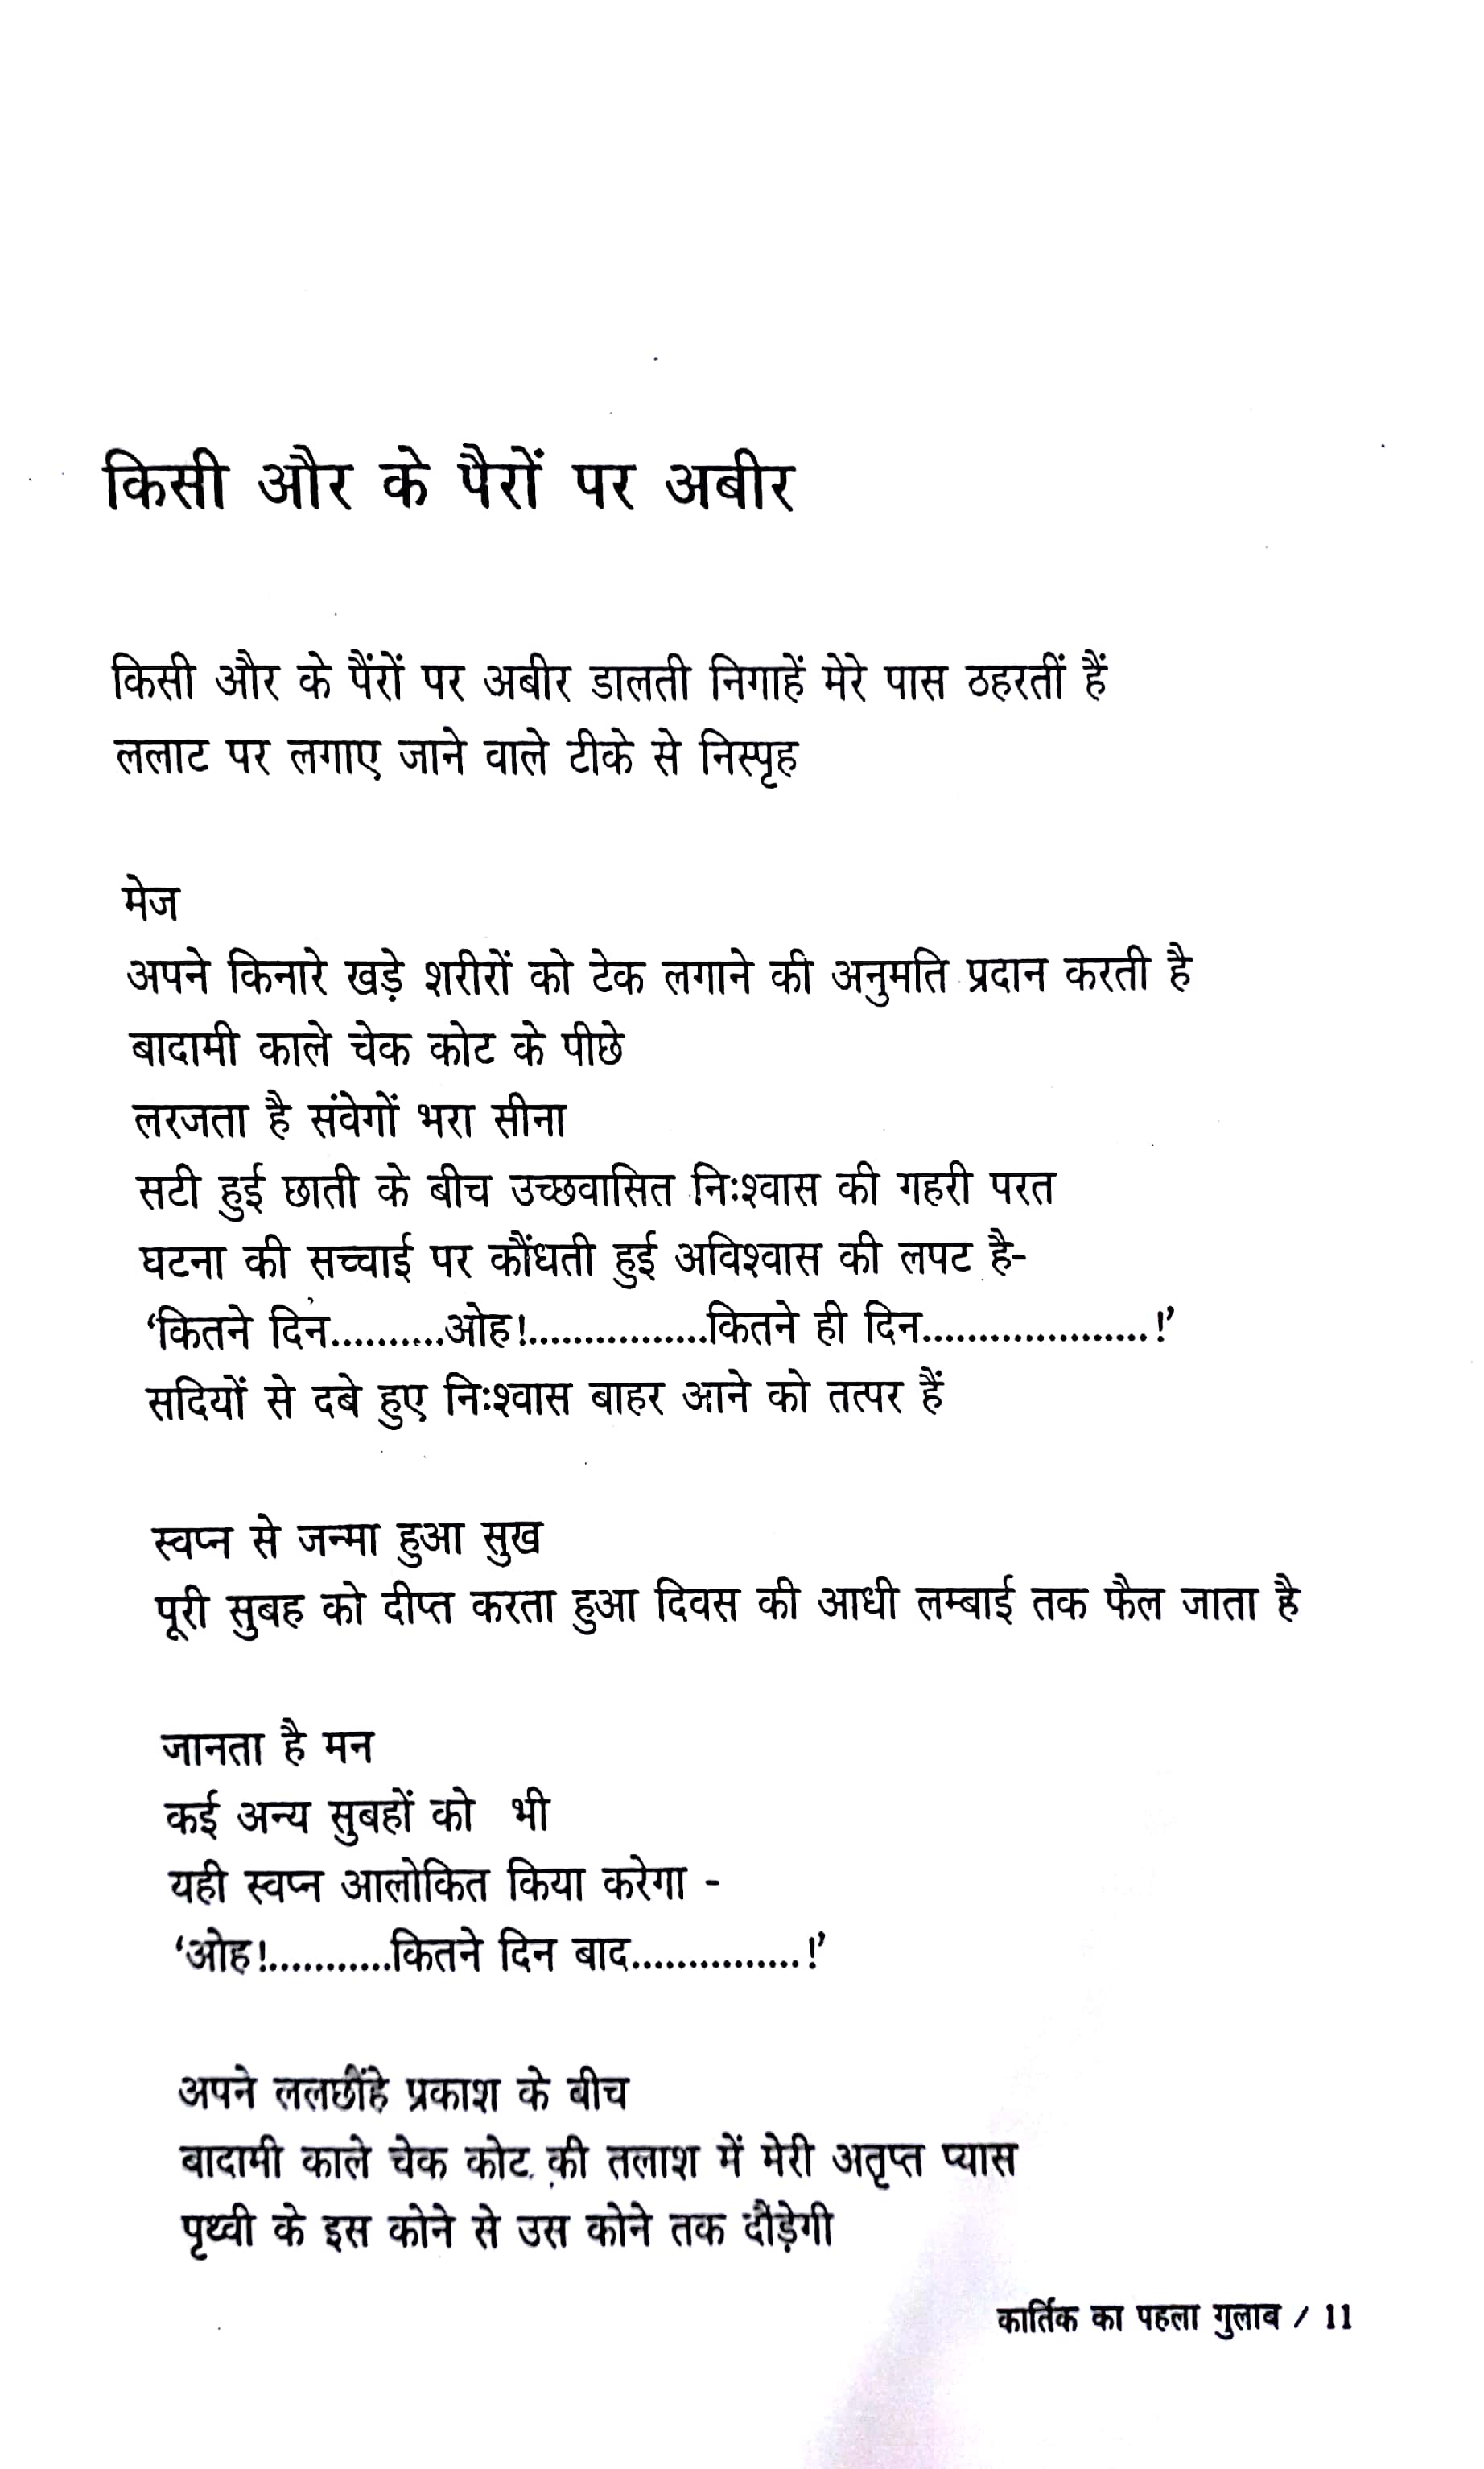 किसी और के पैरों पर अबीर
किसी और के पैंरों पर अबीर डालती निगाहें मेरे पास ठहरतीं हैं
ललाट पर लगाए जाने वाले टीके से निस्पृह
मेज
अपने किनारे खड़े शरीरों को टेक लगाने की अनुमति प्रदान करती है
बादामी काले चेक कोट के पीछे
लरजता है संवेगों भरा सीना
सटी हुई छाती के बीच उच्छवासित निःश्वास की गहरी परत
घटना की सच्चाई पर कौंधती हुई अविश्वास की लपट है-
‘कितने दिन..........ओह!................कितने ही दिन....................!’
सदियों से दबे हुए निःश्वास बाहर आने को तत्पर हैं
स्वप्न से जन्मा हुआ सुख
पूरी सुबह को दीप्त करता हुआ दिवस की आधी लम्बाई तक फैल जाता है
जानता है मन
कई अन्य सुबहों को भी
यही स्वप्न आलोकित किया करेगा -
‘ओह!...........कितने दिन बाद...............!’
अपने ललछौंहे प्रकाश के बीच
बादामी काले चेक कोट की तलाश में मेरी अतृप्त प्यास
पृथ्वी के इस कोने से उस कोने तक दौड़ेगी
कार्तिक का पहला गुलाब / 11